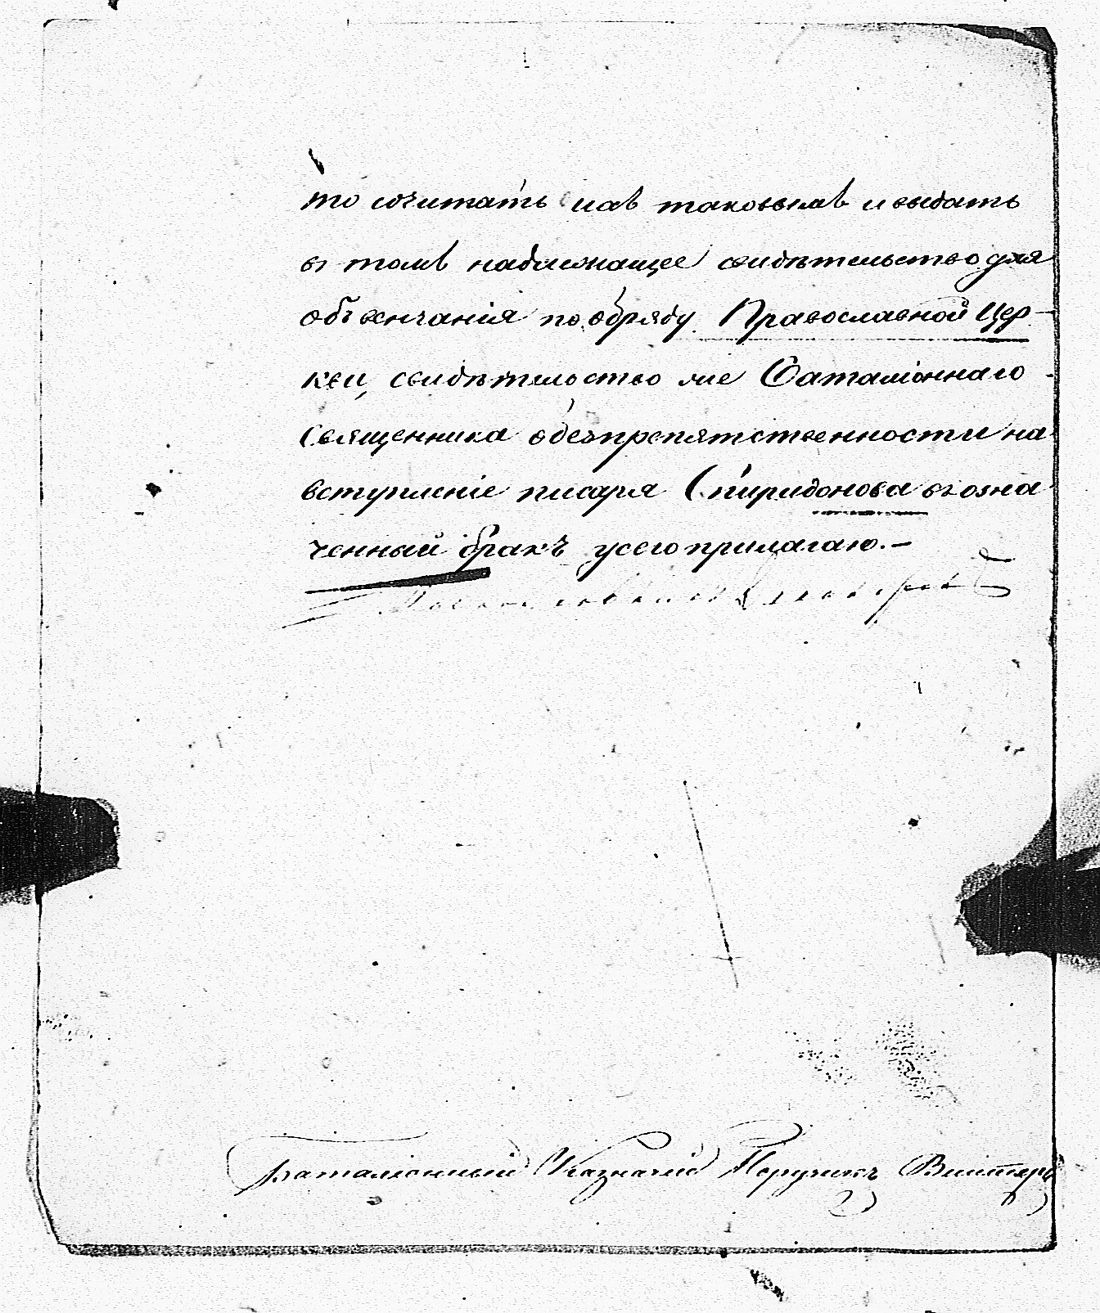 то считать ихъ таковымъ и выдать
въ томъ надлежащее свидѣтельство для
объвенчанія по обряду Православной Цер-
кви, свидѣтельство же Баталіоннаго
Священника о безпрепятственности на
вступленіе писаря Спиридонова въ озна
ченный бракъ у сего прилагаю.-
Баталіонный Казначей Поручикъ